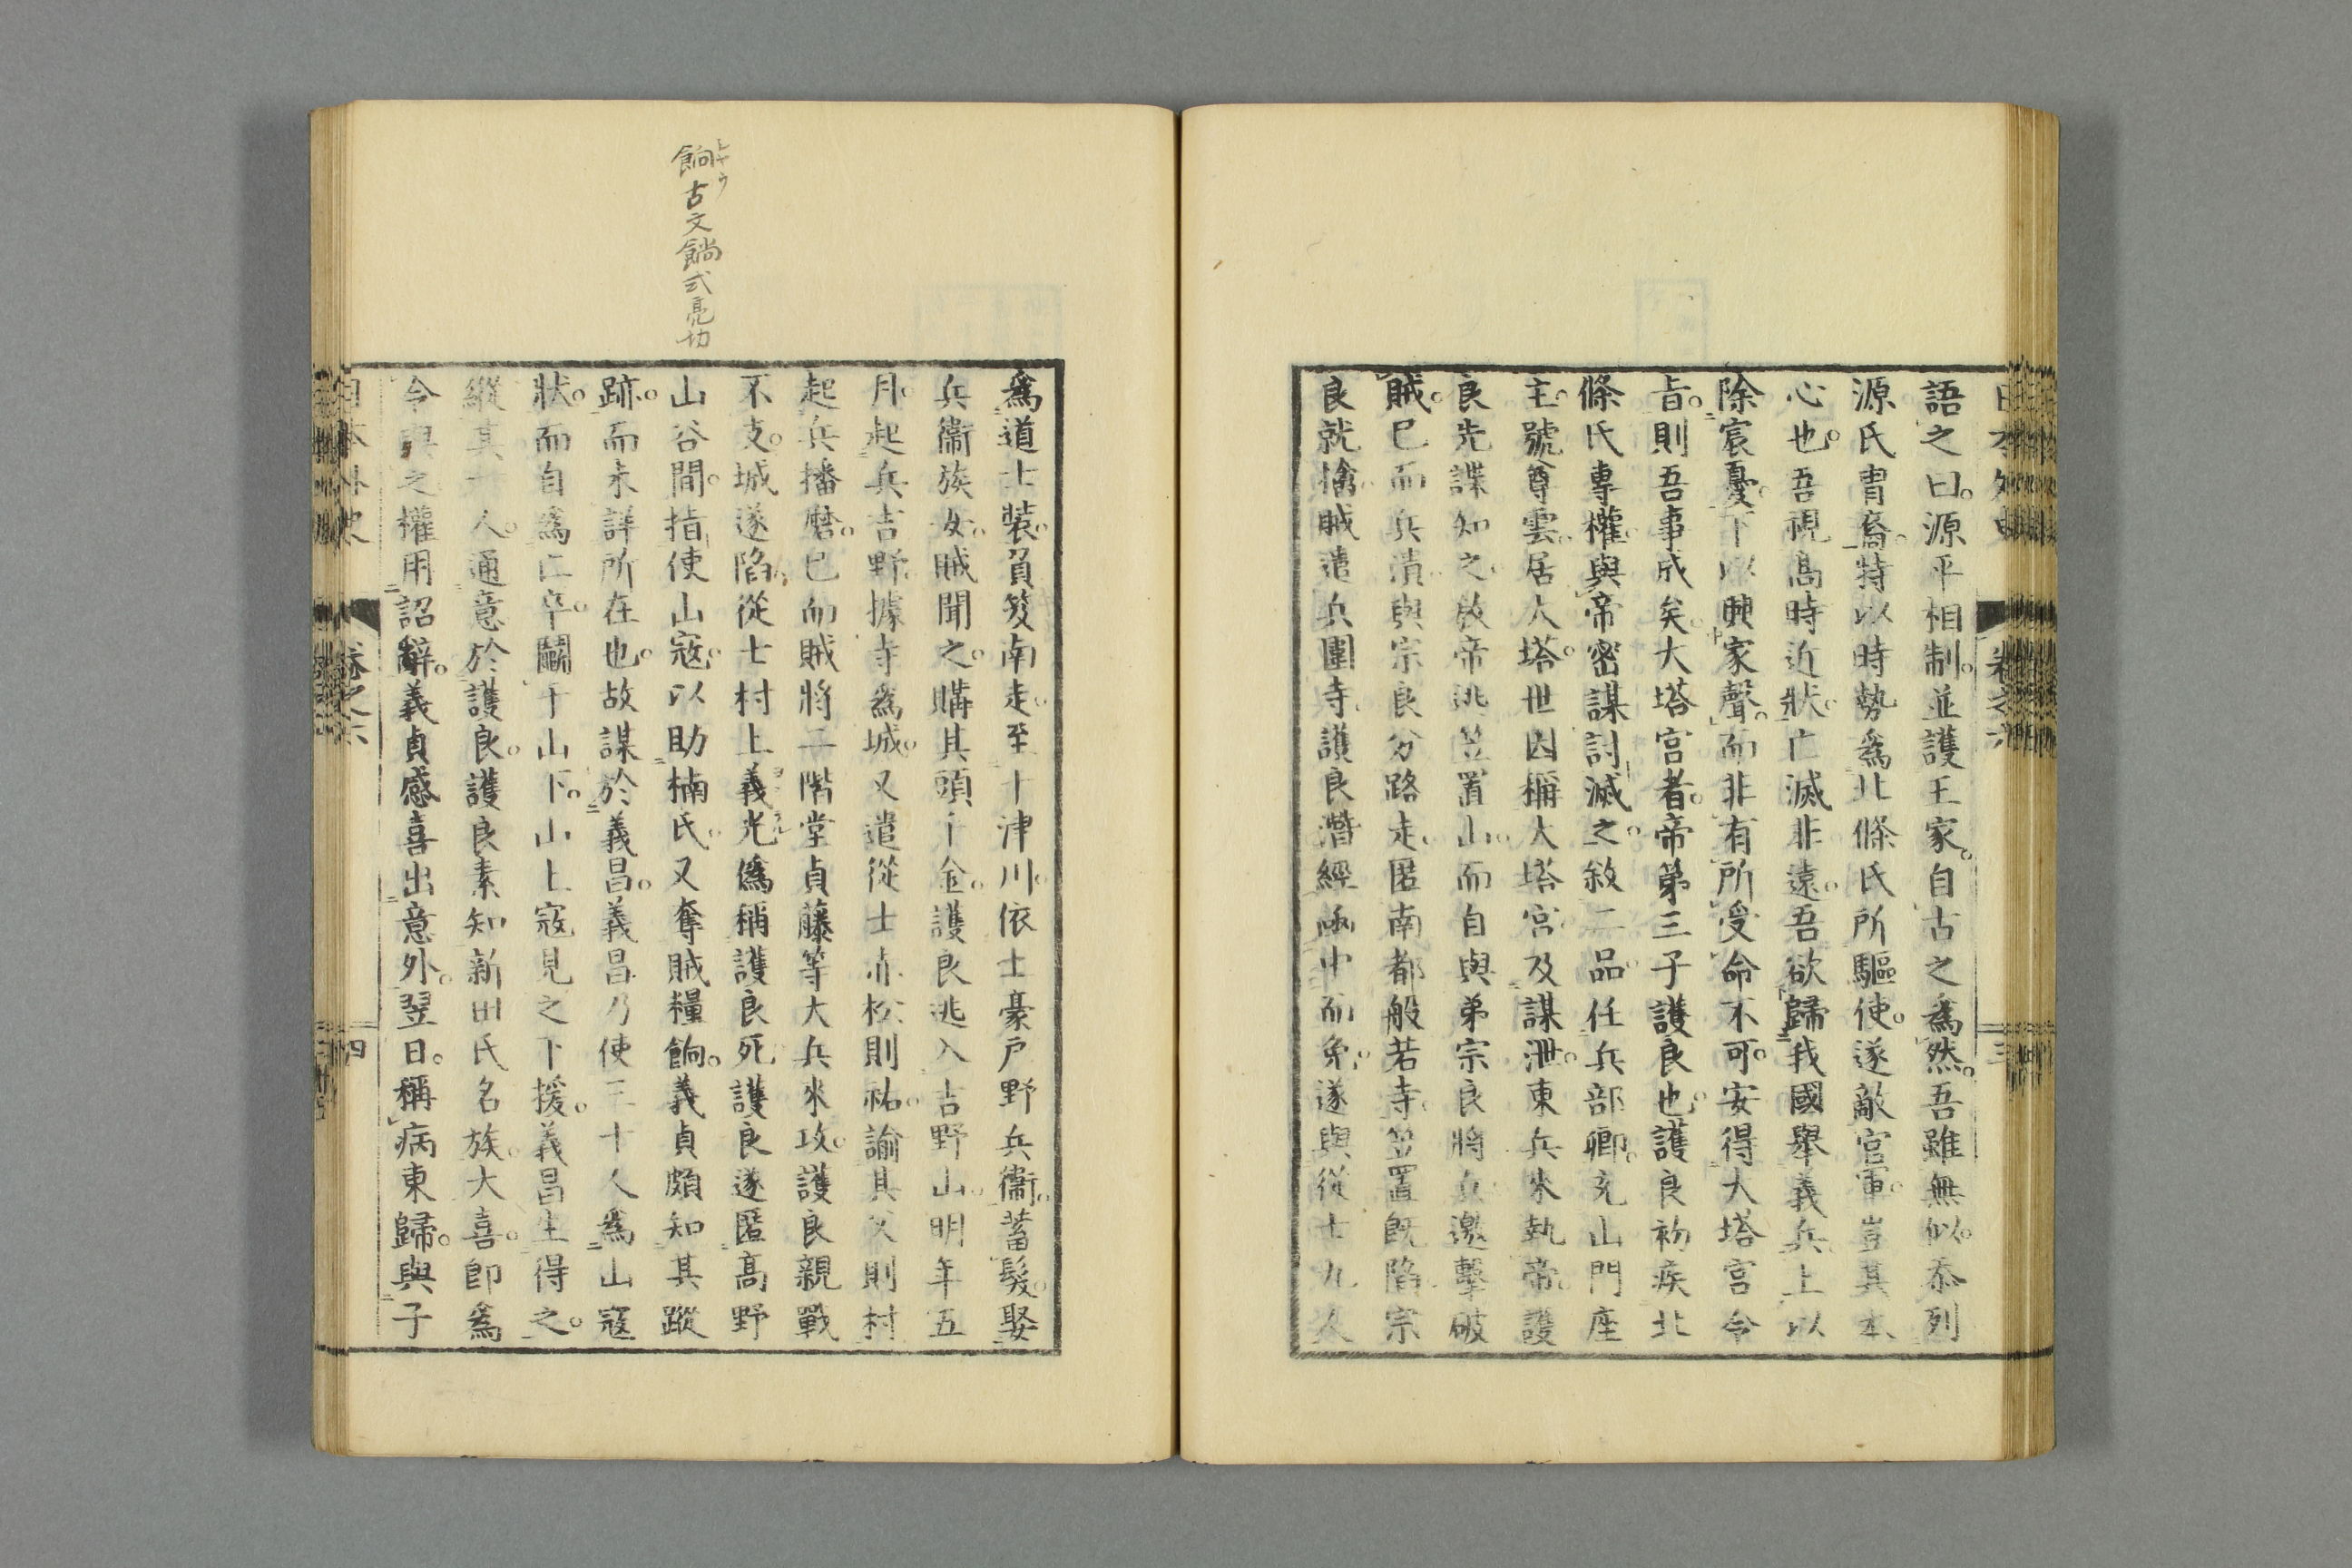 日本外史 卷之六 三
語之曰。源平相制。並護王家。自古之爲然。吾雖無似。忝列
源氏冑裔。特以時勢爲北條氏所驅使。遂敵官軍。豈其本
心也。吾視高時近狀。亡滅非遠。吾欲歸我國舉義兵。上以
除宸憂。下以興家聲。而非有所受命不可。安得大塔宮令
旨。則吾事成矣。大塔宮者。帝第三子護良也。護良初疾北
條氏專權。與帝密謀討滅之。敘二品。任兵部卿。充山門座
主。號尊雲。居大塔。世因稱大塔宮。及謀泄。東兵來執帝。護
良先諜知之。放帝逃笠置山。而自與弟宗良將兵邀擊破
賊。已而兵潰。與宗良分路走。匿南都般若寺。笠置既陷。宗
良就擒。賊遣兵圍寺。護良潛經函中而免。遂與從士九人
爲道士裝。負笈南走。至十津川。依土豪戶野兵衞。蓄髮。娶
兵衞族女。賊聞之。購其頭千金。護良逃入吉野山。明年五
月。起兵吉野。據寺爲城。又遣從士赤松則祐。諭其父則村
起兵播磨。已而賊將二階堂貞藤等大兵來攻。護良親戰
不支。城遂陷。從士村上義光僞稱護良死。護良遂匿高野
山谷間。指使山寇。以助楠氏。又奪賊糧餉。義貞頗知其蹤
跡。而未詳所在也。故謀於義昌。義昌乃使三十人爲山寇
狀。而自爲亡卒。鬭于山下。山上寇見之下援。義昌生得之。
縱其十人。通意於護良。護良素知新田氏名族。大喜。卽爲
令與之。權用詔辭。義貞感喜出意外。翌日。稱病東歸。與子
日本外史 卷之六 四
餉古文餉式亮切
シヤウ
ヨシテル